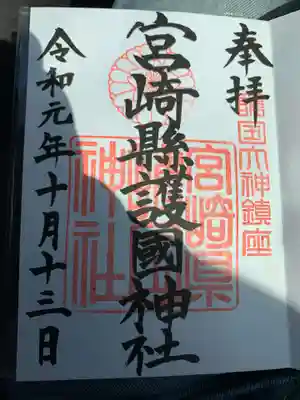 奉拝
護国大神鎮座
宮崎縣護國神社
宮崎県
神社
令和元年十月十三日